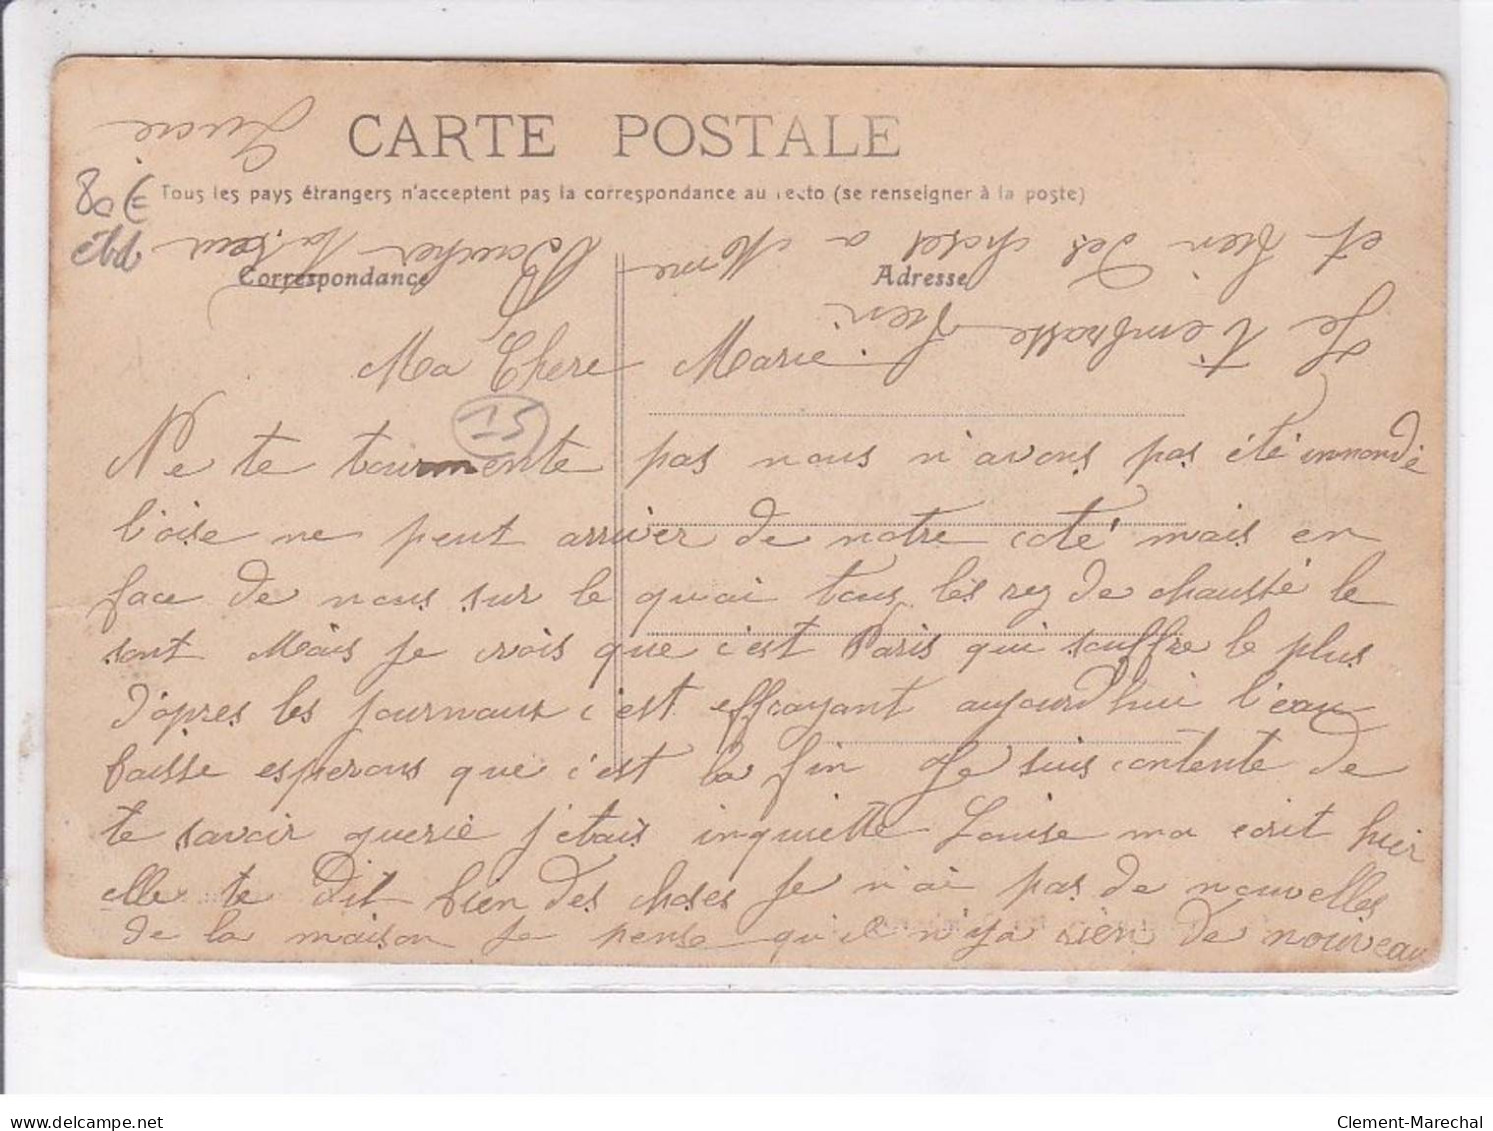 CARTE POSTALE
Tous les pays étrangers n'acceptent pas la correspondance au recto (se renseigner à la poste)
80€
Correspondance
Adresse
Ma Chere Marie
15
Ne te tourmente pas nous n'avons pas été innondé
l'oise ne peut arriver de notre coté mais en
face de nous sur le quai tous les rez de chaussé le
sont Mais je crois que c'est Paris qui souffre le plus
d'apres les journaux c'est effrayant aujourd'hui l'eau
baisse esperons que c'est la fin Je suis contente de
te savoir querie j'etais inquiette Louise ma ecrit hier
elle te dit bien des choses Je n'ai pas de nouvelles
de la maison Je pense qu'il n'ya rien de nouveau
Je t'embrasse bien
et bien des choses a Mme
Boucher ta soeur
Lucie
Clement-Marechal
delcampe.net